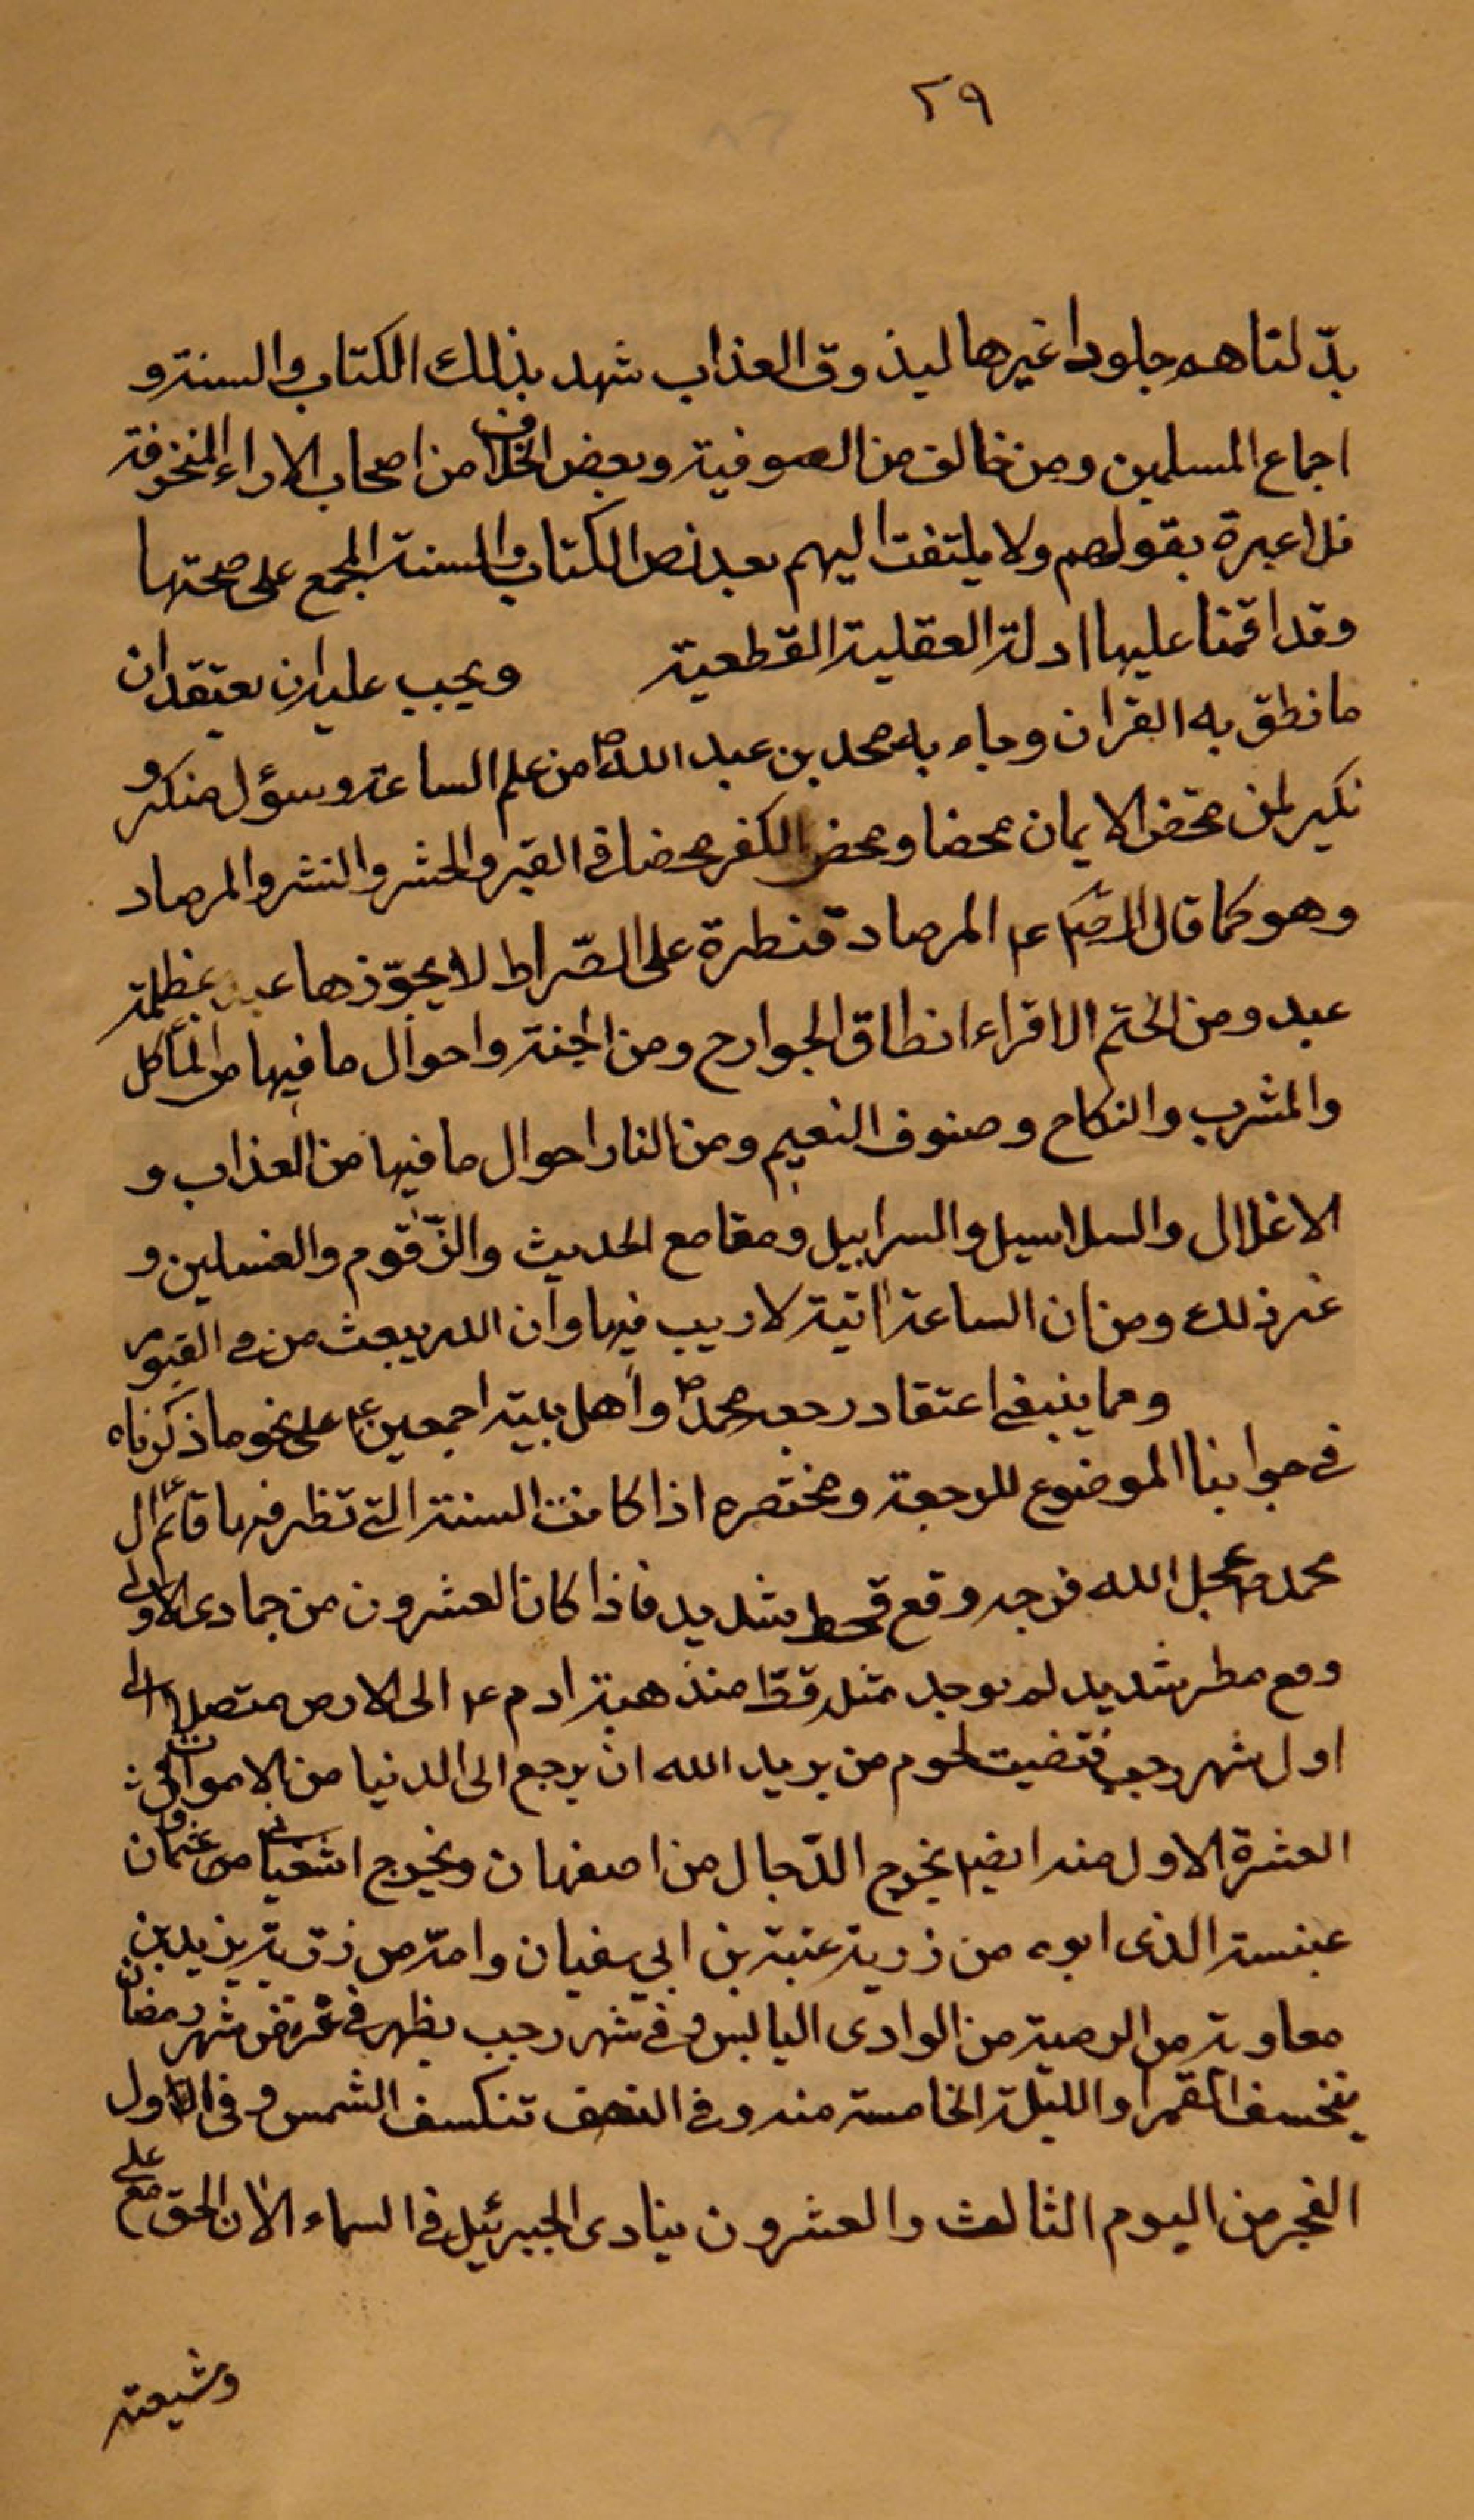 ٢٩
بدّلناهم جلودا غيرها ليذوق العذاب شهد بذلك الكتاب والسنة و
اجماع المسلمين ومن خالف من الصوفية وبعض الخلاف من اصحاب الاراء المنخرفة
فلا عبرة بقولهم ولا يلتفت اليهم بعد نص الكتاب والسنة المجمع على صحتها
وقد اقمنا عليها ادلة العقلية القطعية ويجب عليه ان يعتقد ان
ما نطق به القران وجاء به محمد بن عبد الله ص من علم الساعة وسؤل منكر و
نكير لمن محّض الايمان محضا ومحض الكفر محضا في القبر والحشر والنشر والمرصاد
وهو كما قال الص ع المرصاد قنطرة على الصّراط لا يجوّزها عبد بمظلمة
عبد ومن الختم الاقراء انطاق الجوارح ومن الجنة واحوال ما فيها من المأكل
والمشرب والنكاح وصنوف النعيم ومن النار احوال ما فيها من العذاب و
الاغلال والسلاسيل والسرابيل ومقامع الحديث والزّقوم والغسلين و
غير ذلك ومن ان الساعة اتية لا ريب فيها وان الله يبعث من في القبور
ومما ينبغي اعتقاد رجعة محمد ص واهل بيته اجمعين ع على نحو ما ذكرناه
في جوابنا الموضوع للرجعة ومختصره اذا كانت السنة التي تظهر فيها قائم ال
محمد ص عجل الله فرجه وقع قحط شديد فاذا كان العشرون من جمادى الاولى
وقع مطر شديد لم يوجد مثله قطّ منذ هبة ادم ع الى الارض متصلا الى
اول شهر رجب فتضيت لحوم من يريد الله ان يرجع الى الدنيا من الاموات وفي
العشرة الاول منه ايضا يخرج الدّجال من اصفهان ويخرج السفياني من عثمان
عبنسة الذى ابوه من ذرية عتبة بن ابي سفيان وامّه من ذرّية يزيد بن
معاوية من الرمية من الوادى اليابس وفي شهر رجب يظهر في شهر رمضان
ينخسف القمر والليلة الخامسة منه وفي النصف تنكسف الشمس وفي الاول
الفجر من اليوم الثالث والعشرون ينادى الجبرئيل في السماء الا ان الحق مع على
وشيعته